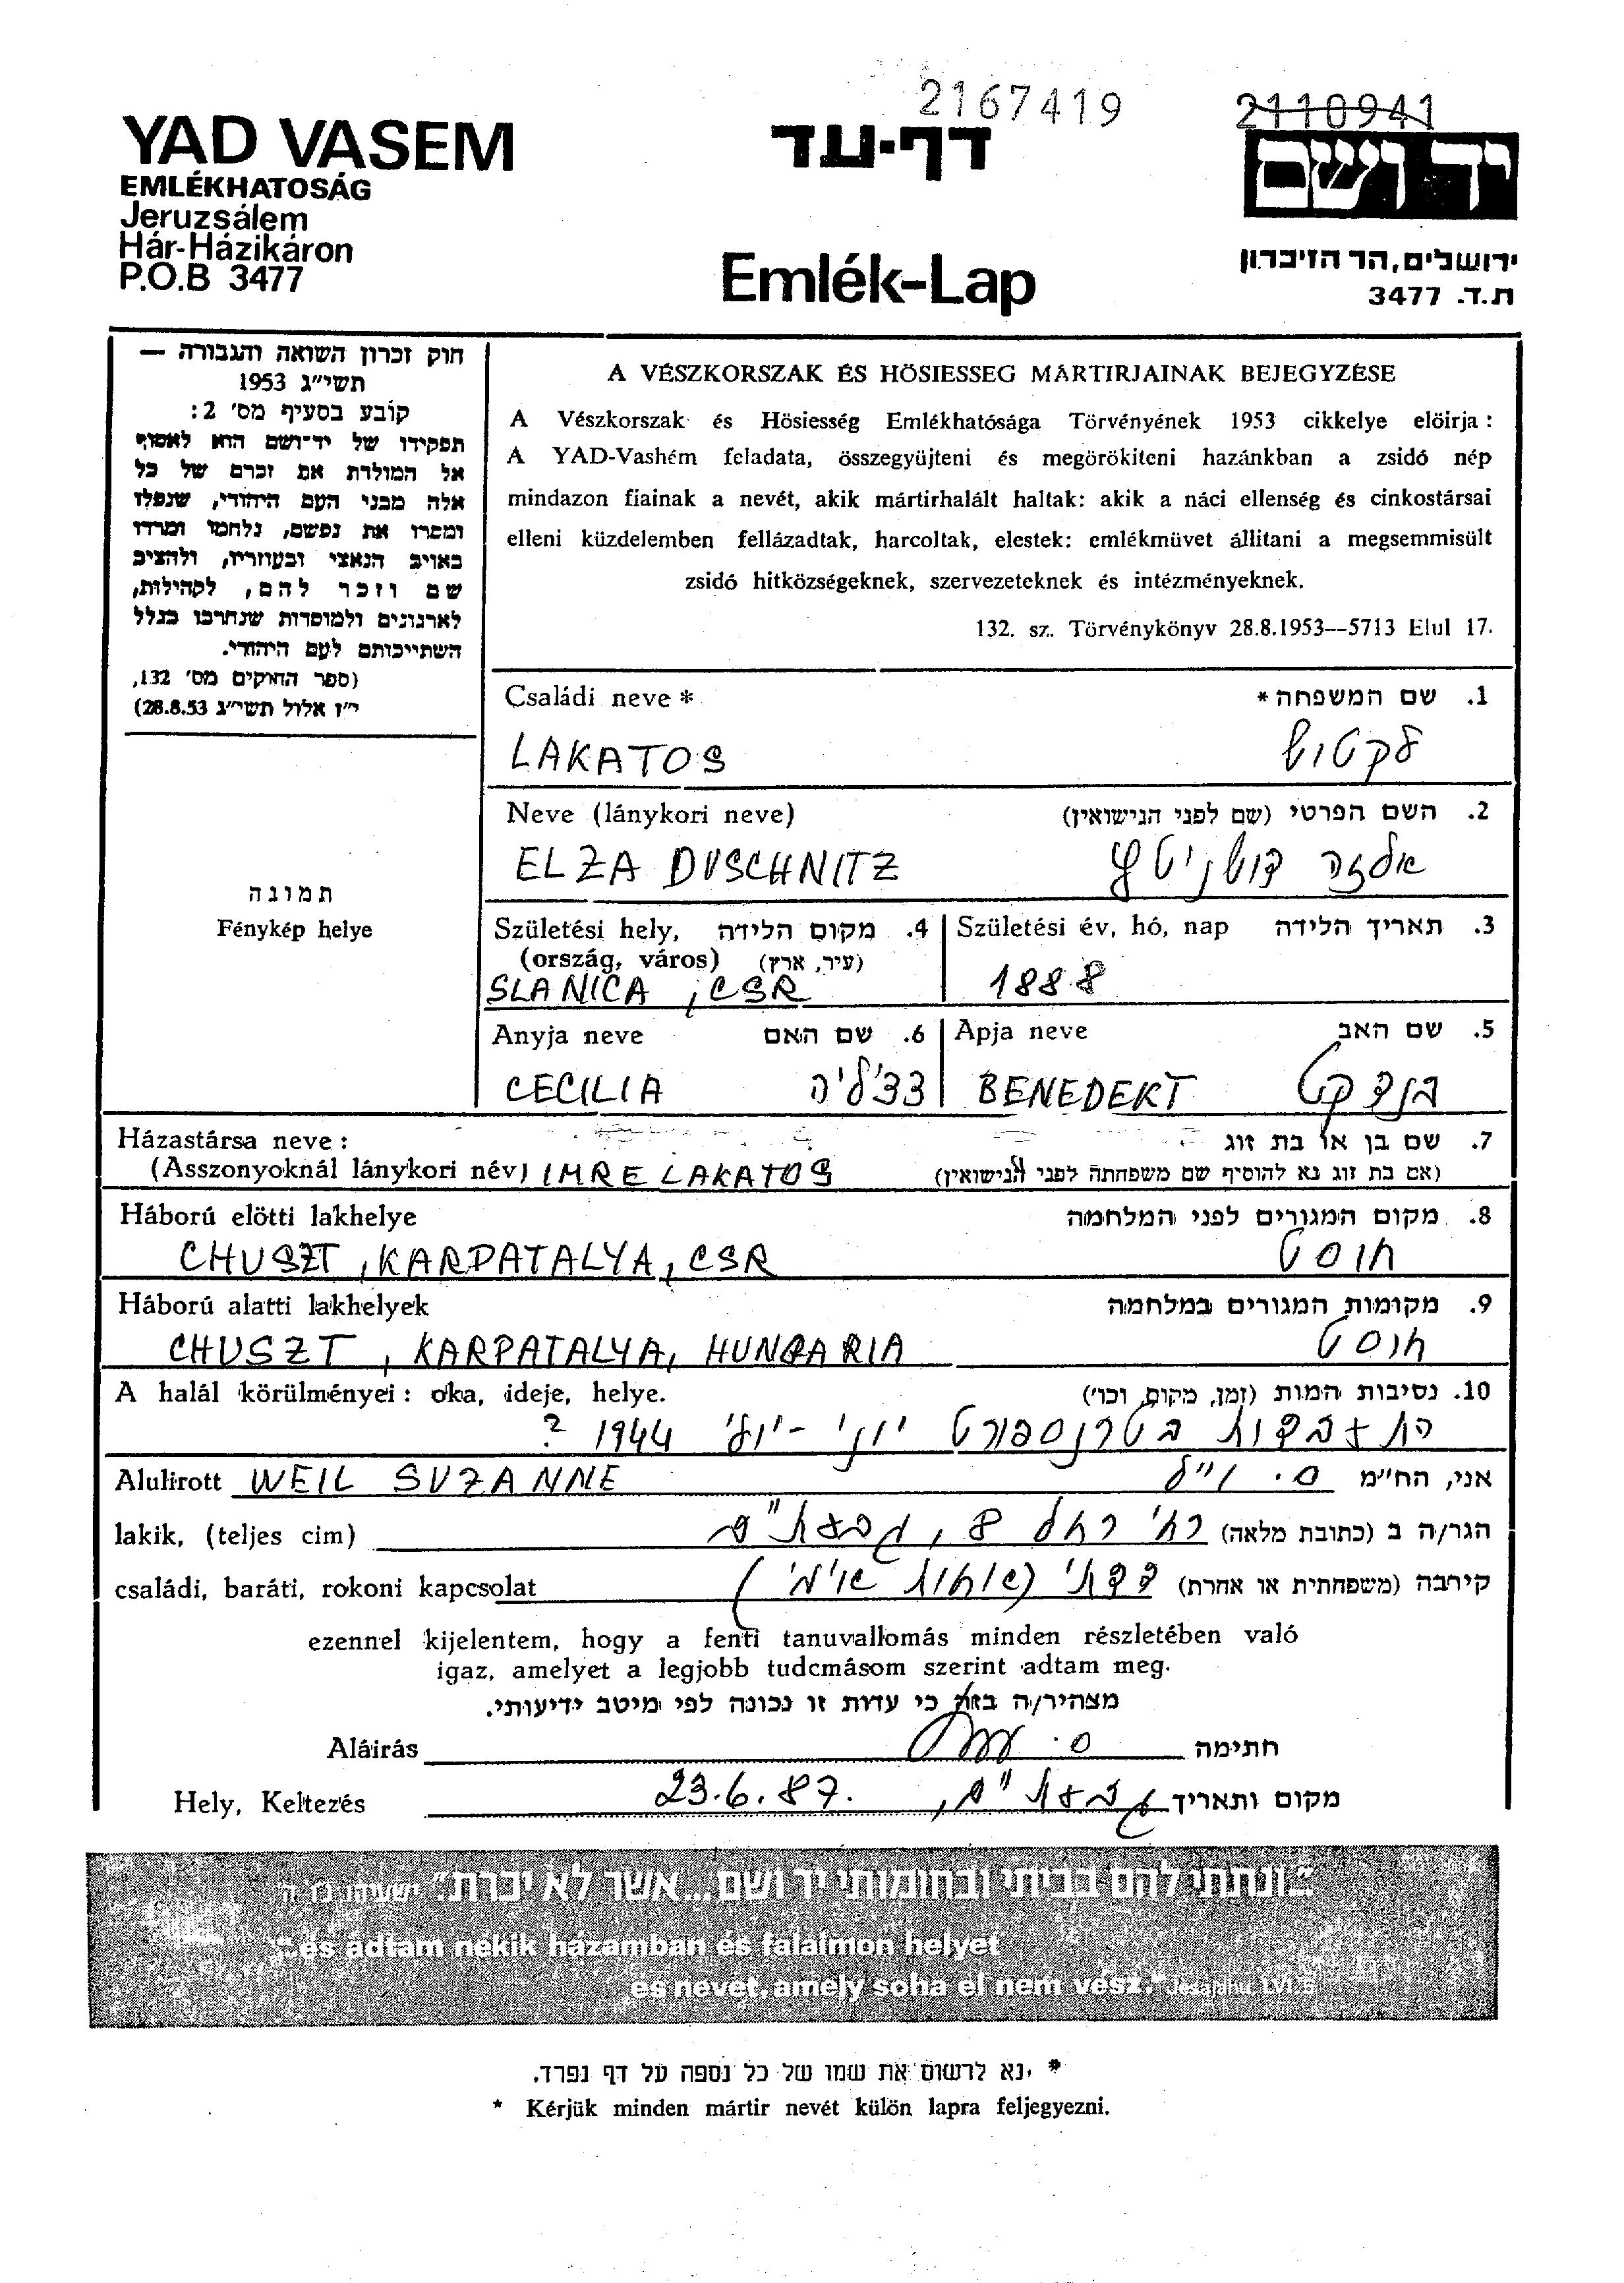 2167419
2110941
YAD VASEM
EMLÉKHATOSÁG
Jeruzsálem
Hár-Házikáron
P.O.B 3477
דף-עד
Emlék-Lap
יד ושם
ירושלים, הר הזיכרון
ת.ד. 3477
חוק זכרון השואה והגבורה —
תשי"ג 1953
קובע בסעיף מס' 2:
תפקידו של יד-ושם הוא לאסוף
אל המולדת את זכרם של כל
אלה מבני העם היהודי, שנפלו
ומסרו את נפשם, נלחמו ומרדו
באויב הנאצי ובעוזריו, ולהציב
שם וזכר להם, לקהילות,
לארגונים ולמוסדות שנחרבו בגלל
השתייכותם לעם היהודי.
(ספר החוקים מס' 132,
י"ז אלול תשי"ג 28.8.53)
A VÉSZKORSZAK ÉS HÖSIESSEG MÁRTIRJAINAK BEJEGYZÉSE
A Vészkorszak és Hösiesség Emlékhatósága Törvényének 1953 cikkelye elöirja:
A YAD-Vashém feladata, összegyüjteni és megörökiteni hazánkban a zsidó nép
mindazon fiainak a nevét, akik mártirhalált haltak: akik a náci ellenség és cinkostársai
elleni küzdelemben fellázadtak, harcoltak, elestek: emlékmüvet állitani a megsemmisült
zsidó hitközségeknek, szervezeteknek és intézményeknek.
132. sz. Törvénykönyv 28.8.1953--5713 Elul 17.
Családi neve * 1. שם המשפחה *
LAKATOS לקטוש
Neve (lánykori neve) 2. השם הפרטי (שם לפני הנישואין)
ELZA DUSCHNITZ אלזה דושניטץ
תמונה
Fénykép helye
Születési hely, 4. מקום הלידה
(ország, város) (עיר, ארץ)
SLANICA, CSR
Születési év, hó, nap 3. תאריך הלידה
1888
Anyja neve 6. שם האם
CECILIA צצ'ליה
Apja neve 5. שם האב
BENEDEKT בנדקט
Házastársa neve: 7. שם בן או בת זוג
(Asszonyoknál lánykori név) IMRE LAKATOS (אם בת זוג נא להוסיף שם משפחתה לפני הנישואין)
Háború elötti lakhelye 8. מקום המגורים לפני המלחמה
CHUSZT, KARPATALYA, CSR חוסט
Háború alatti lakhelyek 9. מקומות המגורים במלחמה
CHUSZT, KARPATALYA, HUNGARIA חוסט
A halál körülményei: oka, ideje, helye. 10. נסיבות המות (זמן, מקום, וכו')
התאבדות בטרנספורט יוני - יולי 1944 ?
Alulirott WEIL SUZANNE אני, הח"מ ס. וייל
lakik, (teljes cim) הגר/ה ב (כתובת מלאה) רח' רחל 8,
családi, baráti, rokoni kapcsolat קירבה (משפחתית או אחרת) דדתי (אחות אימי)
ezennel kijelentem, hogy a fenti tanuvallomás minden részletében való
igaz, amelyet a legjobb tudcmásom szerint adtam meg.
מצהיר/ה בזאת כי עדות זו נכונה לפי מיטב ידיעותי.
Aláirás חתימה
Hely, Keltezés 23.6.87. מקום ותאריך
"...ונתתי להם בביתי ובחומותי יד ושם...אשר לא יכרת." ישעיהו נו ה'
"...és adtam nékik házamban és falaimon helyet
és nevet, amely soha el nem vész." Jesajahu, LVI.5
* נא לרשום את שמו של כל נספה על דף נפרד.
* Kérjük minden mártir nevét külön lapra feljegyezni.